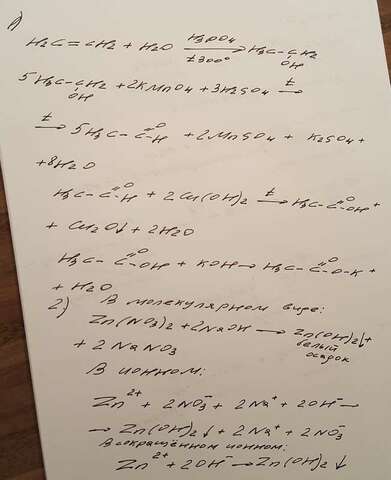 1)
H₂C = CH₂ + H₂O H₃PO₄ t 300° → H₃C – CH₂ OH
5 H₃C – CH₂ OH + 2KMnO₄ + 3H₂SO₄ t →
t → 5H₃C – C =O –H + 2MnSO₄ + K₂SO₄ +
+ 8H₂O
H₃C – C =O –H + 2Cu(OH)₂ t → H₃C – C =O –OH +
+ Cu₂O↓ + 2H₂O
H₃C – C =O –OH + KOH → H₃C – C =O –O–K +
+ H₂O
2) В молекулярном виде:
Zn(NO₃)₂ + 2NaOH → Zn(OH)₂↓ + белый осадок
+ 2NaNO₃
В ионном:
Zn²⁺ + 2NO₃⁻ + 2Na⁺ + 2OH⁻ →
→ Zn(OH)₂↓ + 2Na⁺ + 2NO₃⁻
В сокращённом ионном:
Zn²⁺ + 2OH⁻ → Zn(OH)₂↓